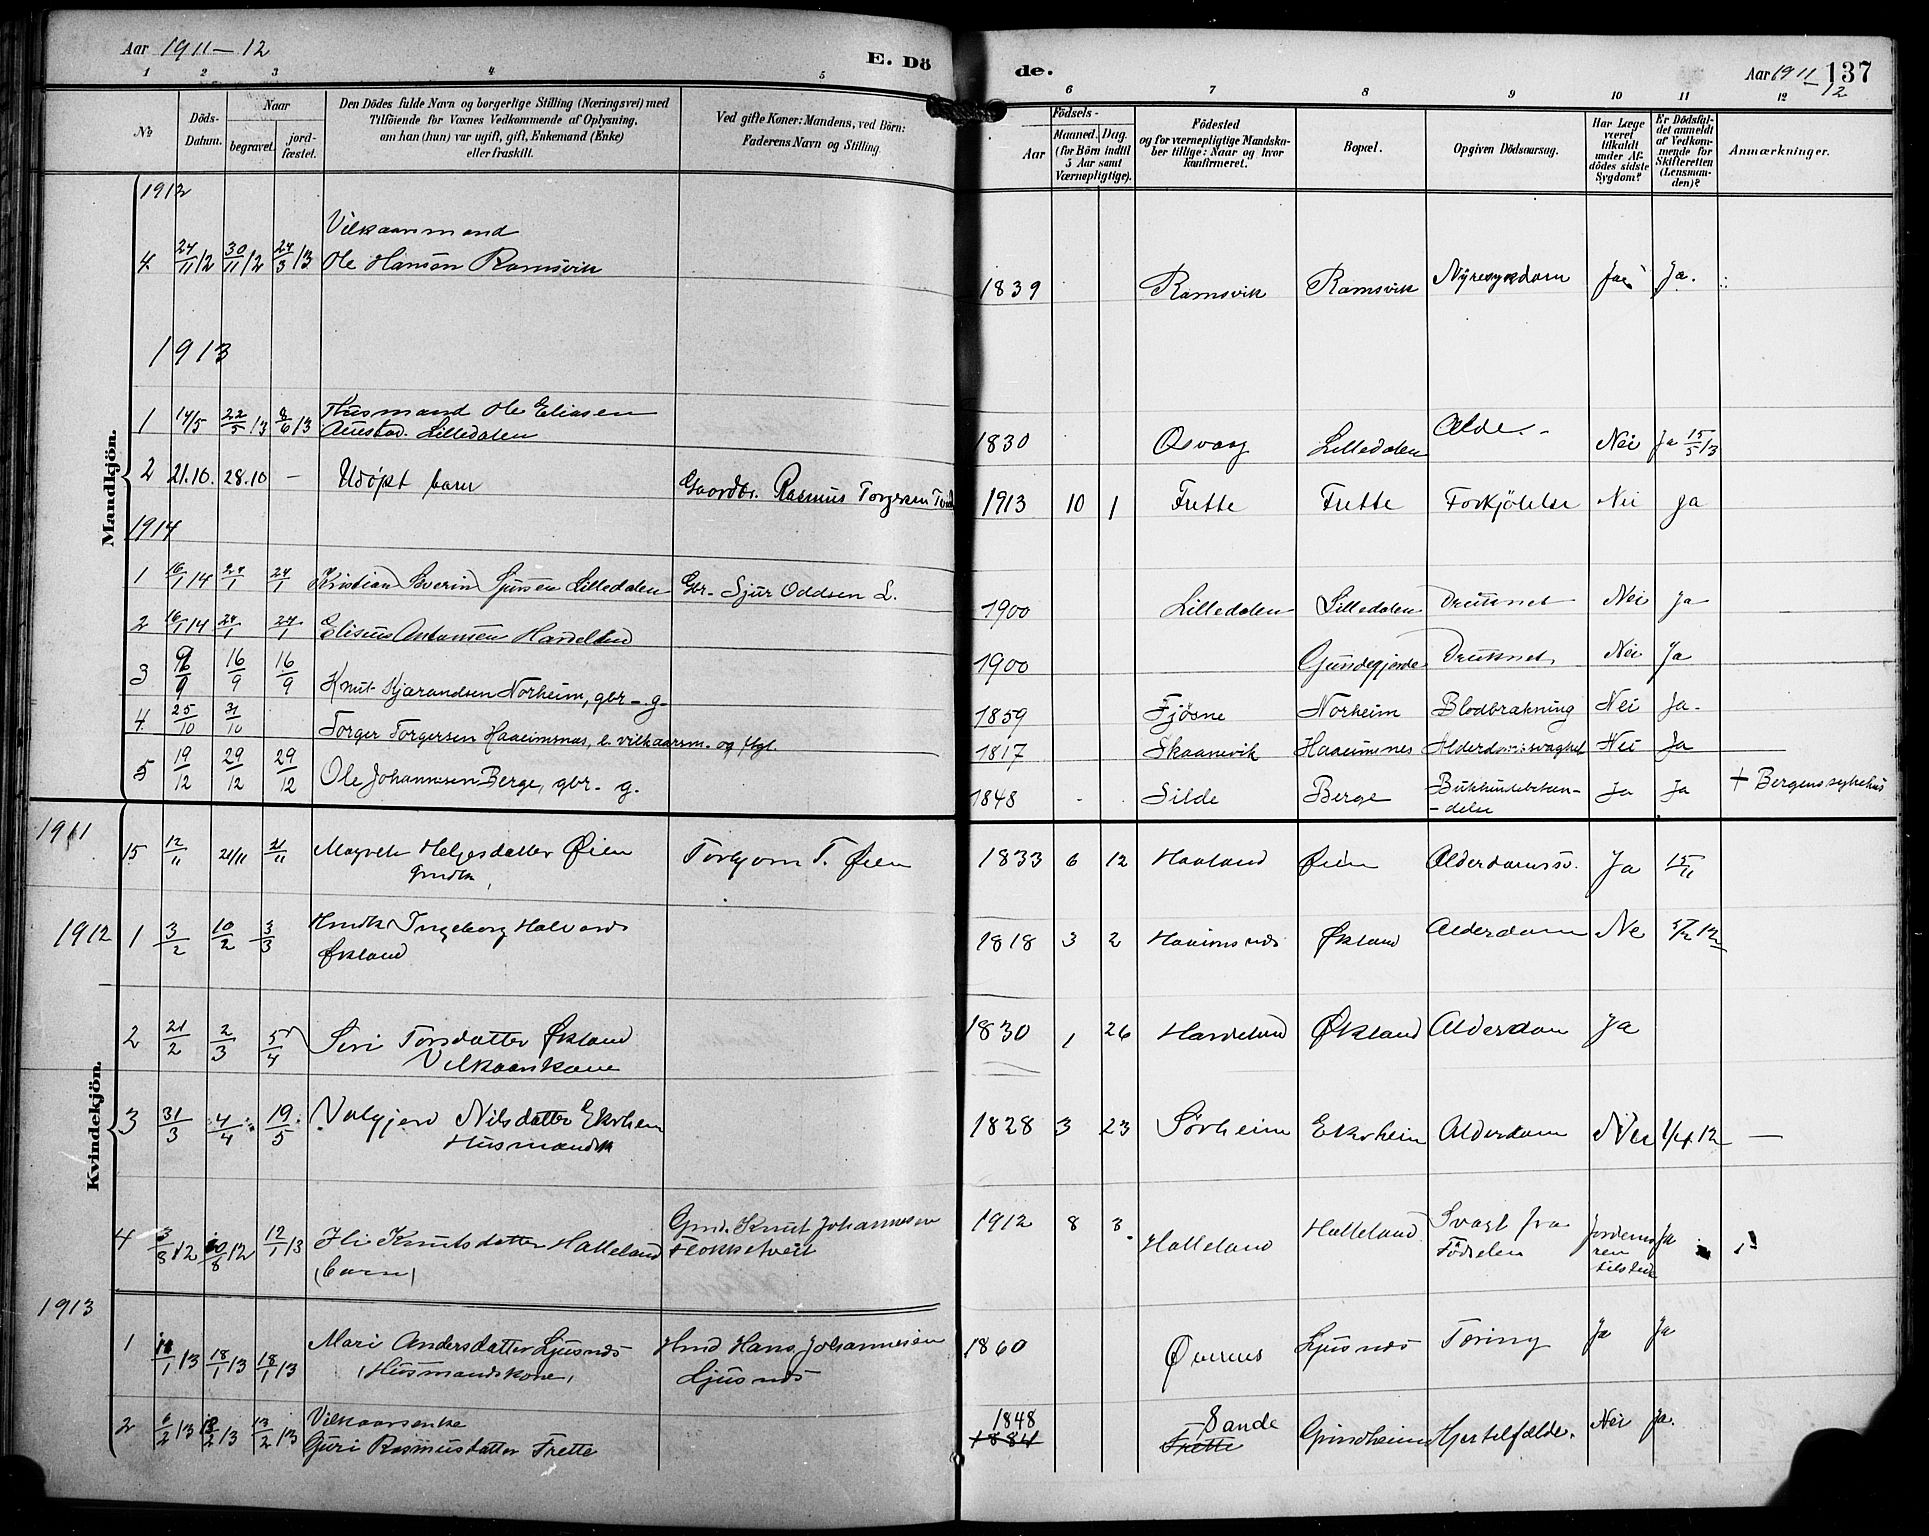 Aar 1911-12
E. Dö
de.
Aar 1911/12
137
1 2 3 4 5
6 7 8 9 10 11 12
No
Döds-Datum.
Naar
begravet.
jord-fæstet.
Den Dödes fulde Navn og borgerlige Stilling (Næringsvei) med
Tilföiende for Voxnes Vedkommende af Oplysning,
om han (hun) var ugift, gift, Enkemand (Enke)
eller fraskilt.
Ved gifte Koner: Mandens, ved Börn:
Faderens Navn og Stilling.
Födsels-
Aar
Maaned. Dag.
(for Börn indtil
5 Aar samt
Værnepligtige).
Födested
og for værnepligtige Mandskaber tillige: Naar og hvor
konfirmeret.
Bopæl.
Opgiven Dödsaarsag.
Har Læge
været
tilkaldt
under Afdödes sidste
Sygdom?
Er Dödsfaldet anmeldt
af Vedkommende for
Skifteretten
(Lensmanden)?
Anmærkninger.
Mandkjön.
1912
4. 24/11 12 30/11 12 24/3 13 Vilkaarsmand
Ole Hansen Ramsvik 1839 Ramsvik Ramsvik Nyresykdom Ja Ja.
1913
1 14/5 22/5 13 8/6 13 Husmand Ole Eliasen
Lilledalen 1830 Osvag Lilledalen Alde.- Nei Ja 15/5 13
2 21.10. 28.10 - Udøpt barn Gaardbr. Rasmus Torgersen 1913 10 1 Frette Frette Forkjölelse Nei Ja
1914
1 16/1 14 24/1 24/1 Kristian Severin Sjursen Lilledalen Gbr. Sjur Oddsen L. 1900 Lilledalen Lilledalen Druknet Nei Ja
2 16/1 14 24/1 24/1 Elisius Antonsen 1900 Druknet. Nei Ja
3 9/9 16/9 16/9 Knut Kjærandsen Norheim, gbr. g. 1859 Fjøsne Norheim Blodbrækning Nei Ja.
4. 25/10 31/10 Torger Torgersen Haaeimsnes, e. vilkaarsm. og 1817 Skaanevik Haaeimsnes Alderdomssvaghet Nei Ja
5 19/12 29/12 29/12 Ole Johannesen Berge, gbr. g. 1848 Silde Berge Bukhindebetændelse Ja Ja + Bergens sykehus
Kvindekjön.
1911
15 12/11 21/11 21/11 Magrete Helgesdatter Øien Torbjorn T. Øien 1833 6 12 Haaland Øien Alderdomssv. Ja 15/11
1912 1 3/2 10/2 3/3 Ingeborg Halvards
Økland 1818 3 2 Haaimsnes Økland Alderdom Ne
2 21/2 2/3 5/4 Siri Torsdatter Økland
Vilkaarskone 1830 1 26 Økland Alderdom Ja
3 31/3 4/4 19/5 Valgjerd Nilsdatter Ekrheim
Husmandsk 1828 3 23 Sørheim Ekrheim Alderdom Nei 1/4 12 -
4 3/8 12 10/8 12 12/1 13 Ili Knutsdatter Halleland
(barn) Gmd. Knut Johannesen
Flokketveit 1912 8 3. Halleland Halleland Svagt fra
Födselen Jordemoren
tilstede Ja
1913
1 11/1 13 18/1 13 18/1 13 Mari Andersdatter Ljusnes
(Husmandskone) Hmd Hans Johannesen
Ljusnes 1860 Øvernes Ljusnes Tæring Ja Ja
2 6/2 13 13/2 13 13/2 13 Vilkaarsenke
Guri Rasmusdatter Frette 1848
1884 Sande
Frette Grindheim Hjertefeil Nei Ja.